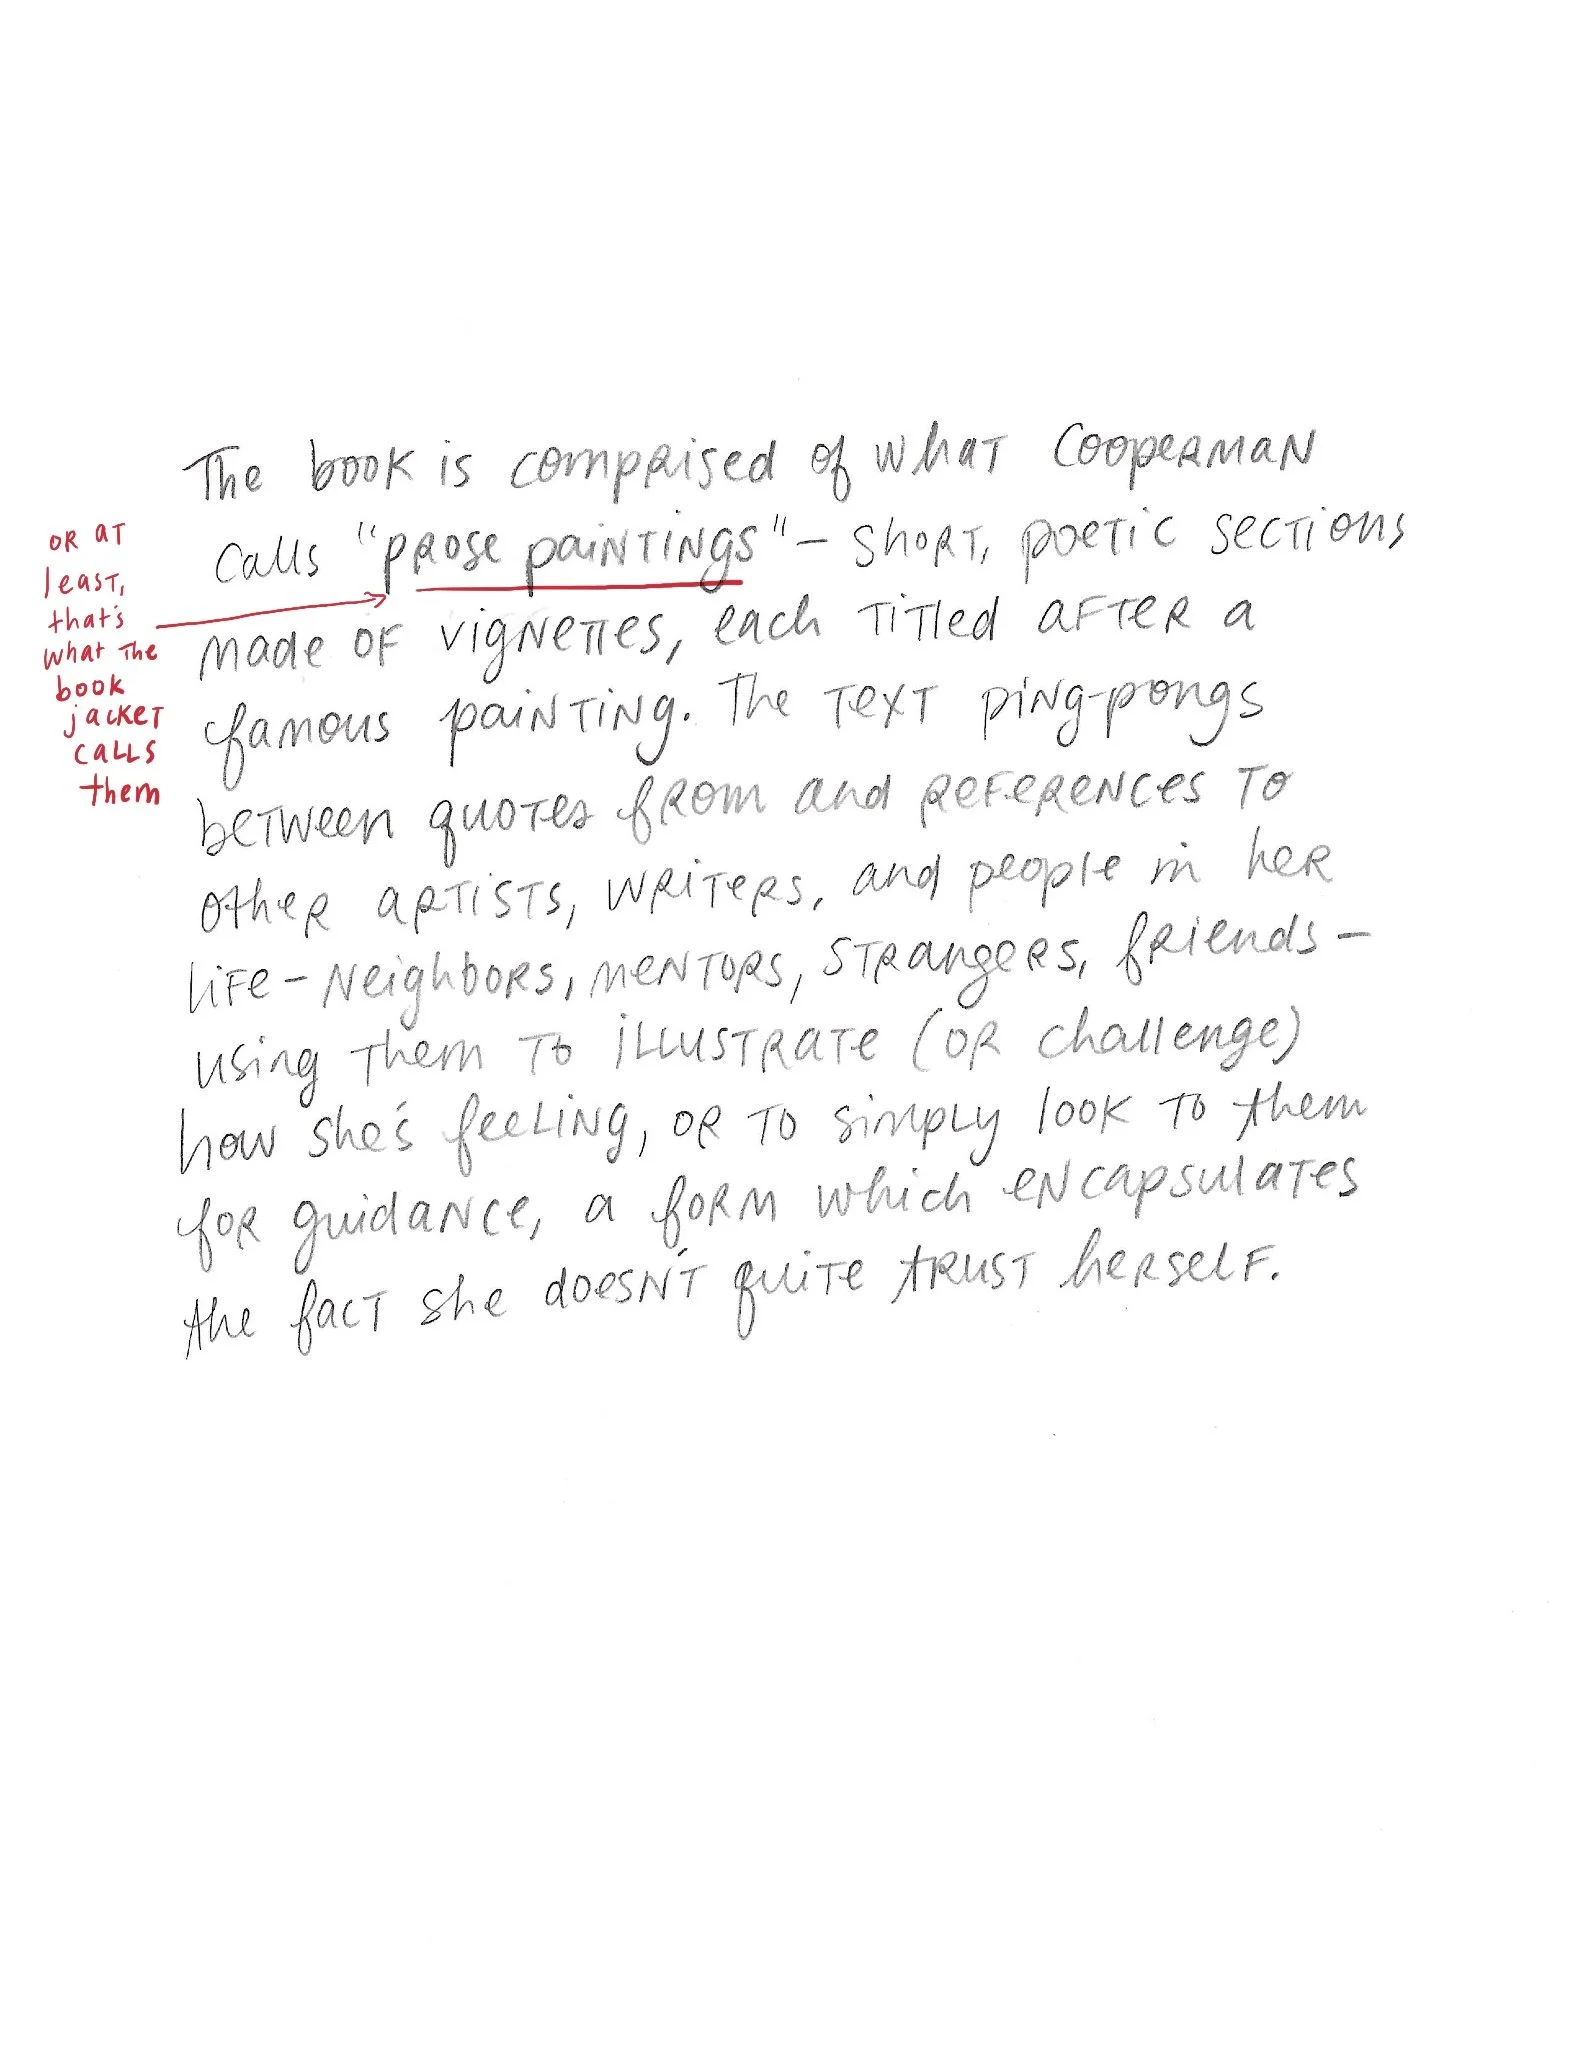 The book is comprised of what Cooperman
calls "prose paintings" – short, poetic sections
made of vignettes, each titled after a
famous painting. The text ping-pongs
between quotes from and references to
other artists, writers, and people in her
life – neighbors, mentors, strangers, friends –
using them to illustrate (or challenge)
how she's feeling, or to simply look to them
for guidance, a form which encapsulates
the fact she doesn't quite trust herself.
or at
least,
that's
what the
book
jacket
calls
them